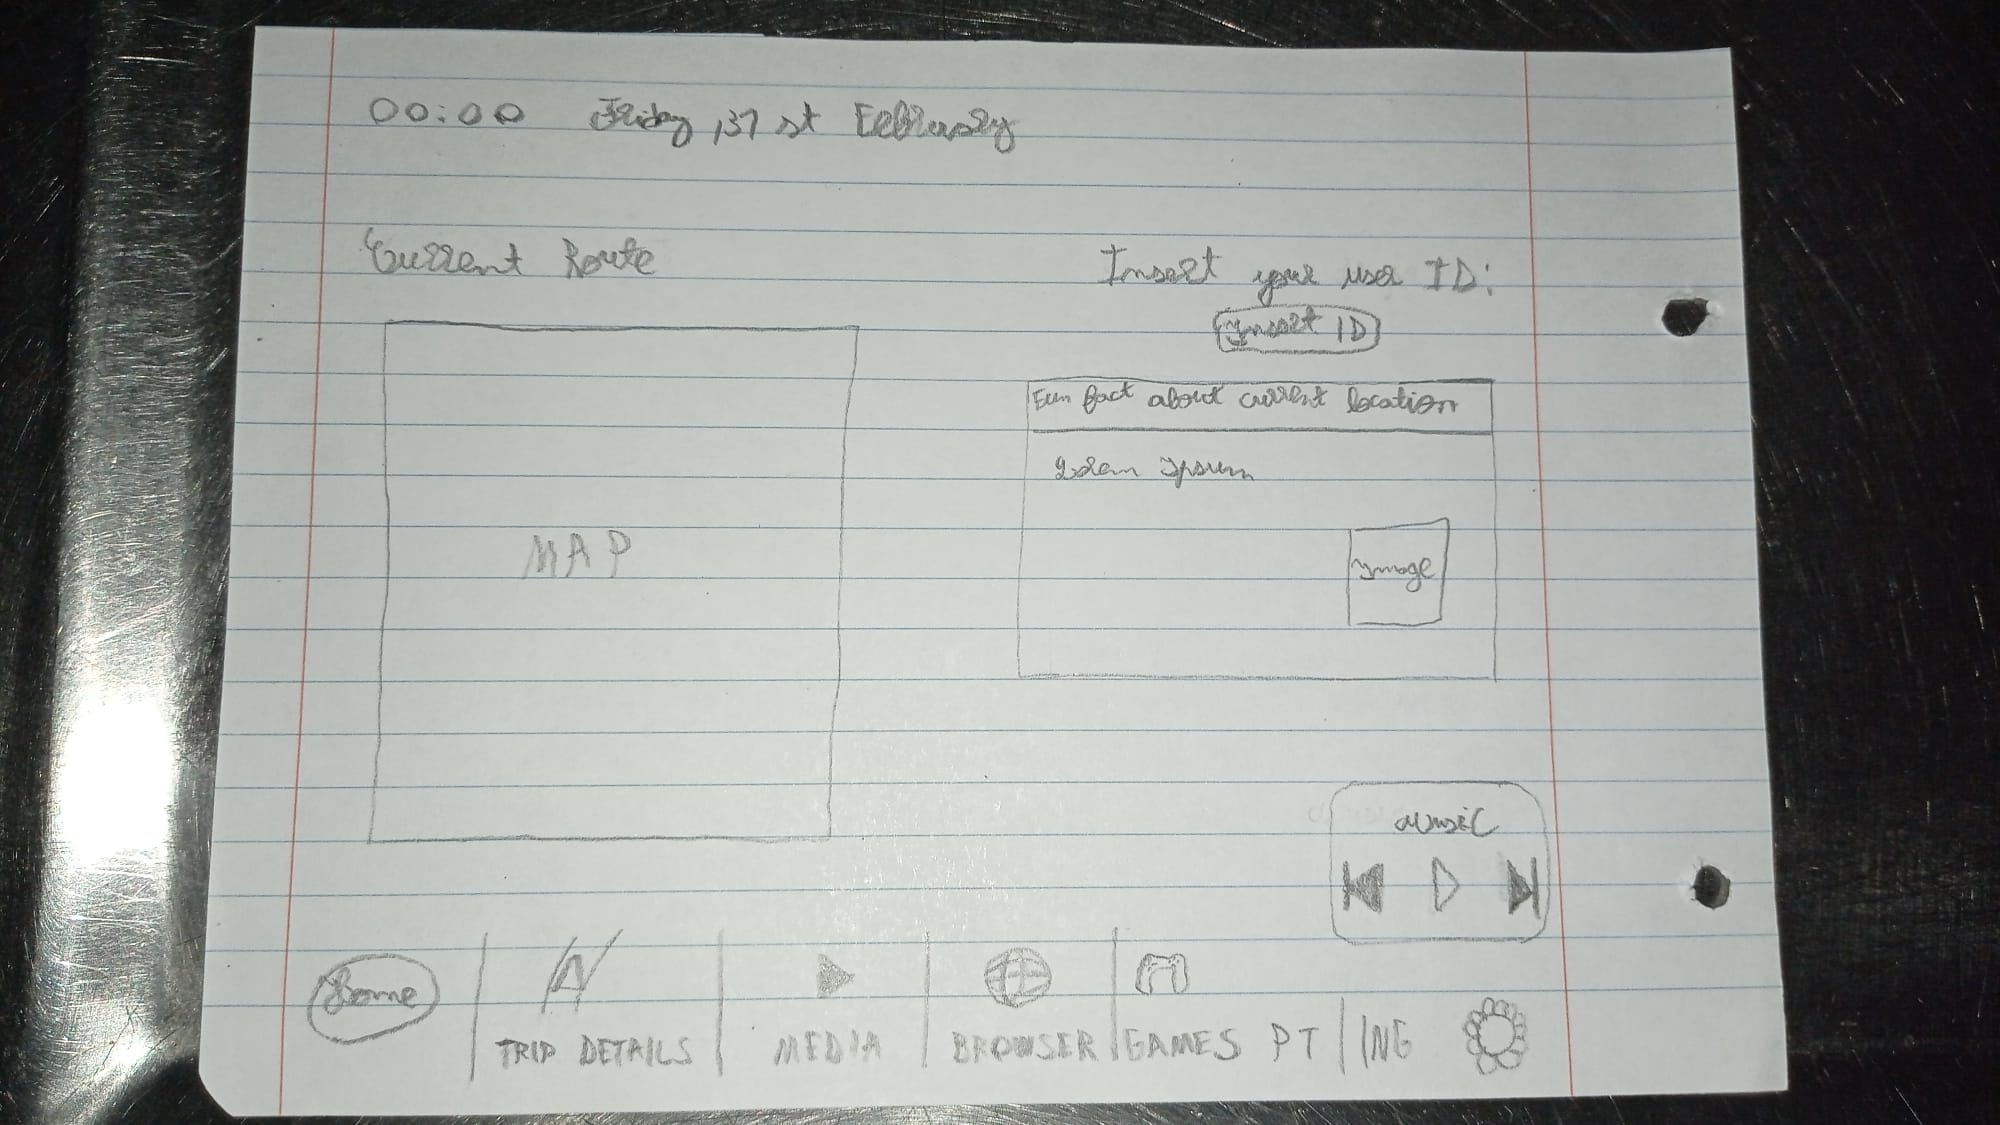 00:00 Friday, 31st February
Current Route
Insert your user ID:
Insert ID
Fun fact about current location
Lorem Ipsum
MAP
Image
Music
Home
TRIP DETAILS
MEDIA
BROWSER
GAMES
PT | ING